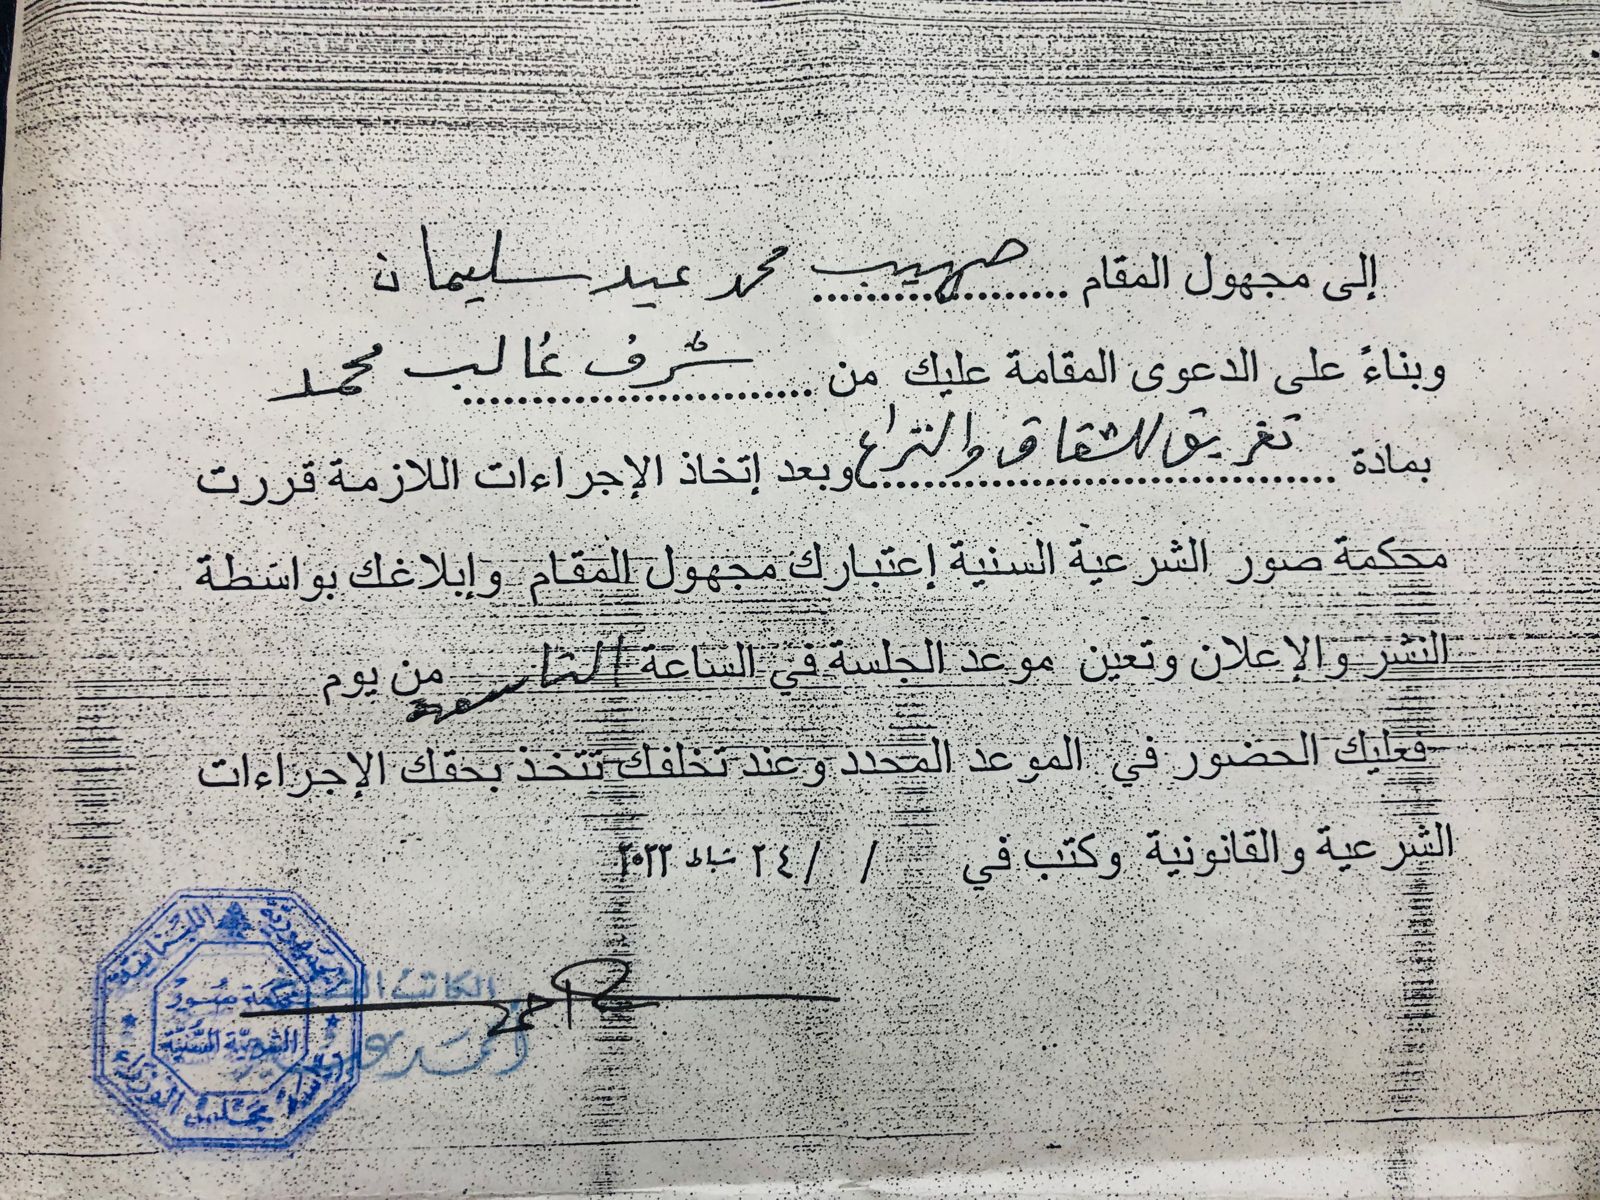 إلى مجهول المقام صهيب محمد عيد سليمان
وبناءً على الدعوى المقامة عليك من شرف غالب محمد
بمادة تفريق للشقاق والنزاع وبعد إتخاذ الإجراءات اللازمة قررت
محكمة صور الشرعية السنية إعتبارك مجهول المقام وإبلاغك بواسطة
النشر والإعلان وتعين موعد الجلسة في الساعة التاسعة من يوم
فعليك الحضور في الموعد المحدد وعند تخلفك تتخذ بحقك الإجراءات
الشرعية والقانونية وكتب في / / ٢٤ شباط ٢٠٢٢
الجمهورية اللبنانية
محكمة صور
الشرعية السنية
رئاسة مجلس الوزراء
الكاتب
أحمد